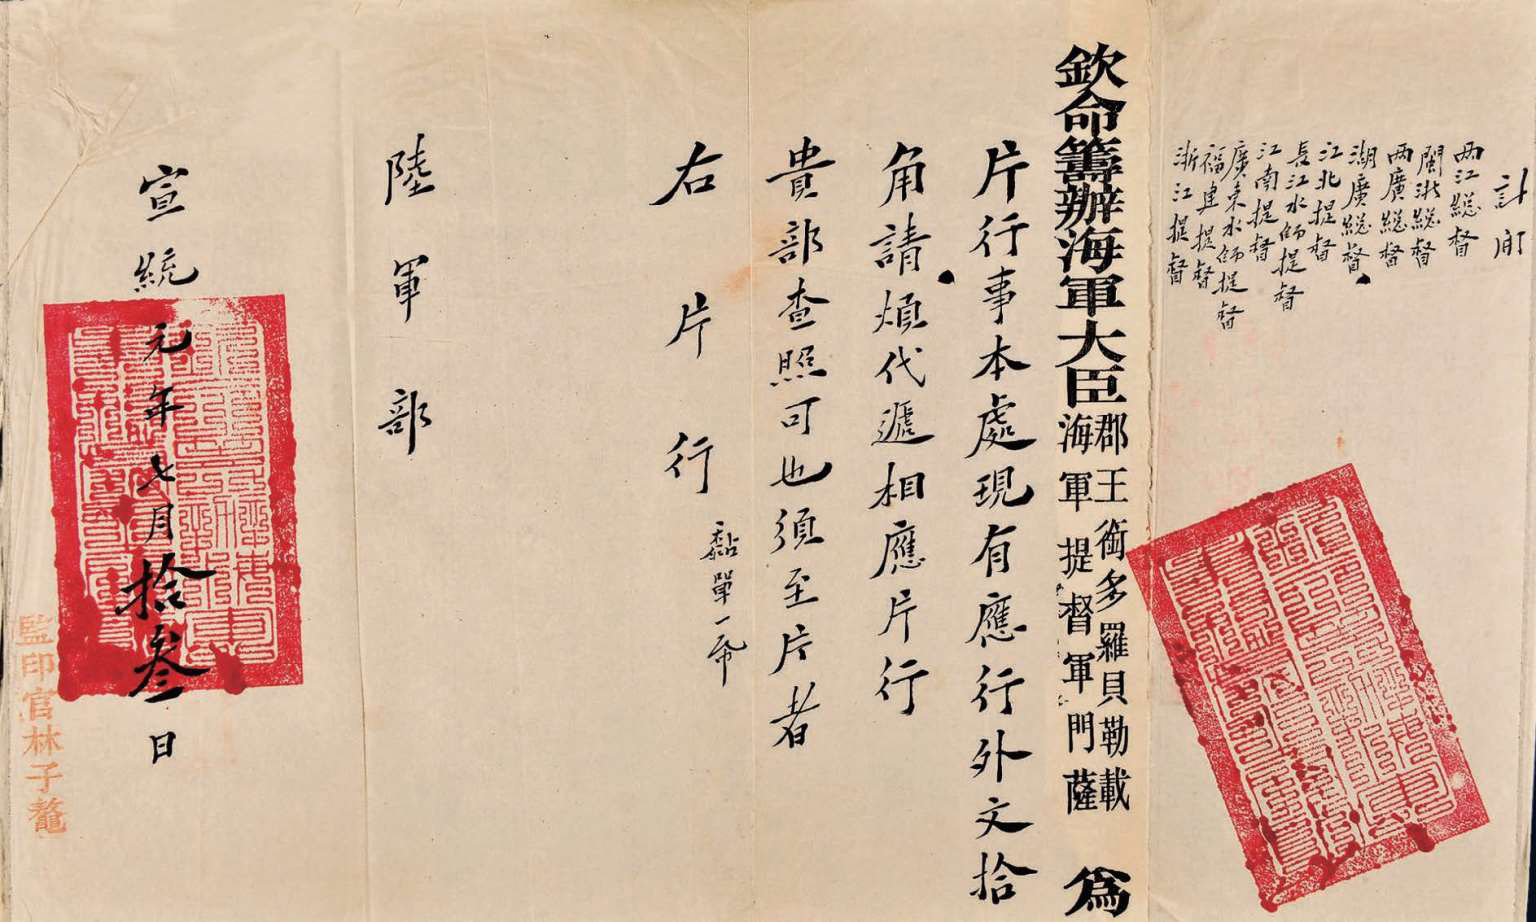 計開
两江総督
閩浙総督
两廣総督
湖廣総督
江北提督
長江水師提督
江南提督
廣東水師提督
福建提督
浙江提督
欽命籌辦海軍大臣
郡王銜多羅貝勒載
海軍提督軍門薩
為
片行事本處現有應行外文拾
角請煩代遞相應片行
貴部查照可也須至片者
右片行
黏單一帋
陸軍部
宣統元年七月拾叁日
監印官林子鰲